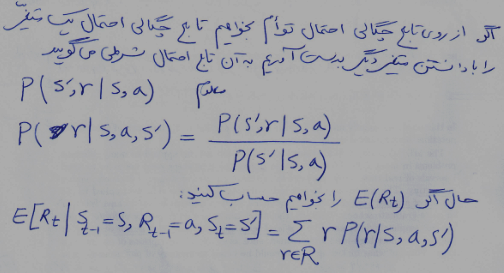 اگر از روی تابع چگالی احتمال توأم بخواهیم تابع چگالی احتمال یک متغیر
را با دانستن متغیر دیگر بدست آوریم به آن تابع احتمال شرطی می‌گویند
P(s',r|s,a) معلوم
P(r|s,a,s') = P(s',r|s,a) / P(s'|s,a)
حال اگر E(Rt) را بخواهیم حساب کنید:
E[Rt | St-1=s, Rt-1=a, St=s'] = Σ r∈R r P(r|s,a,s')